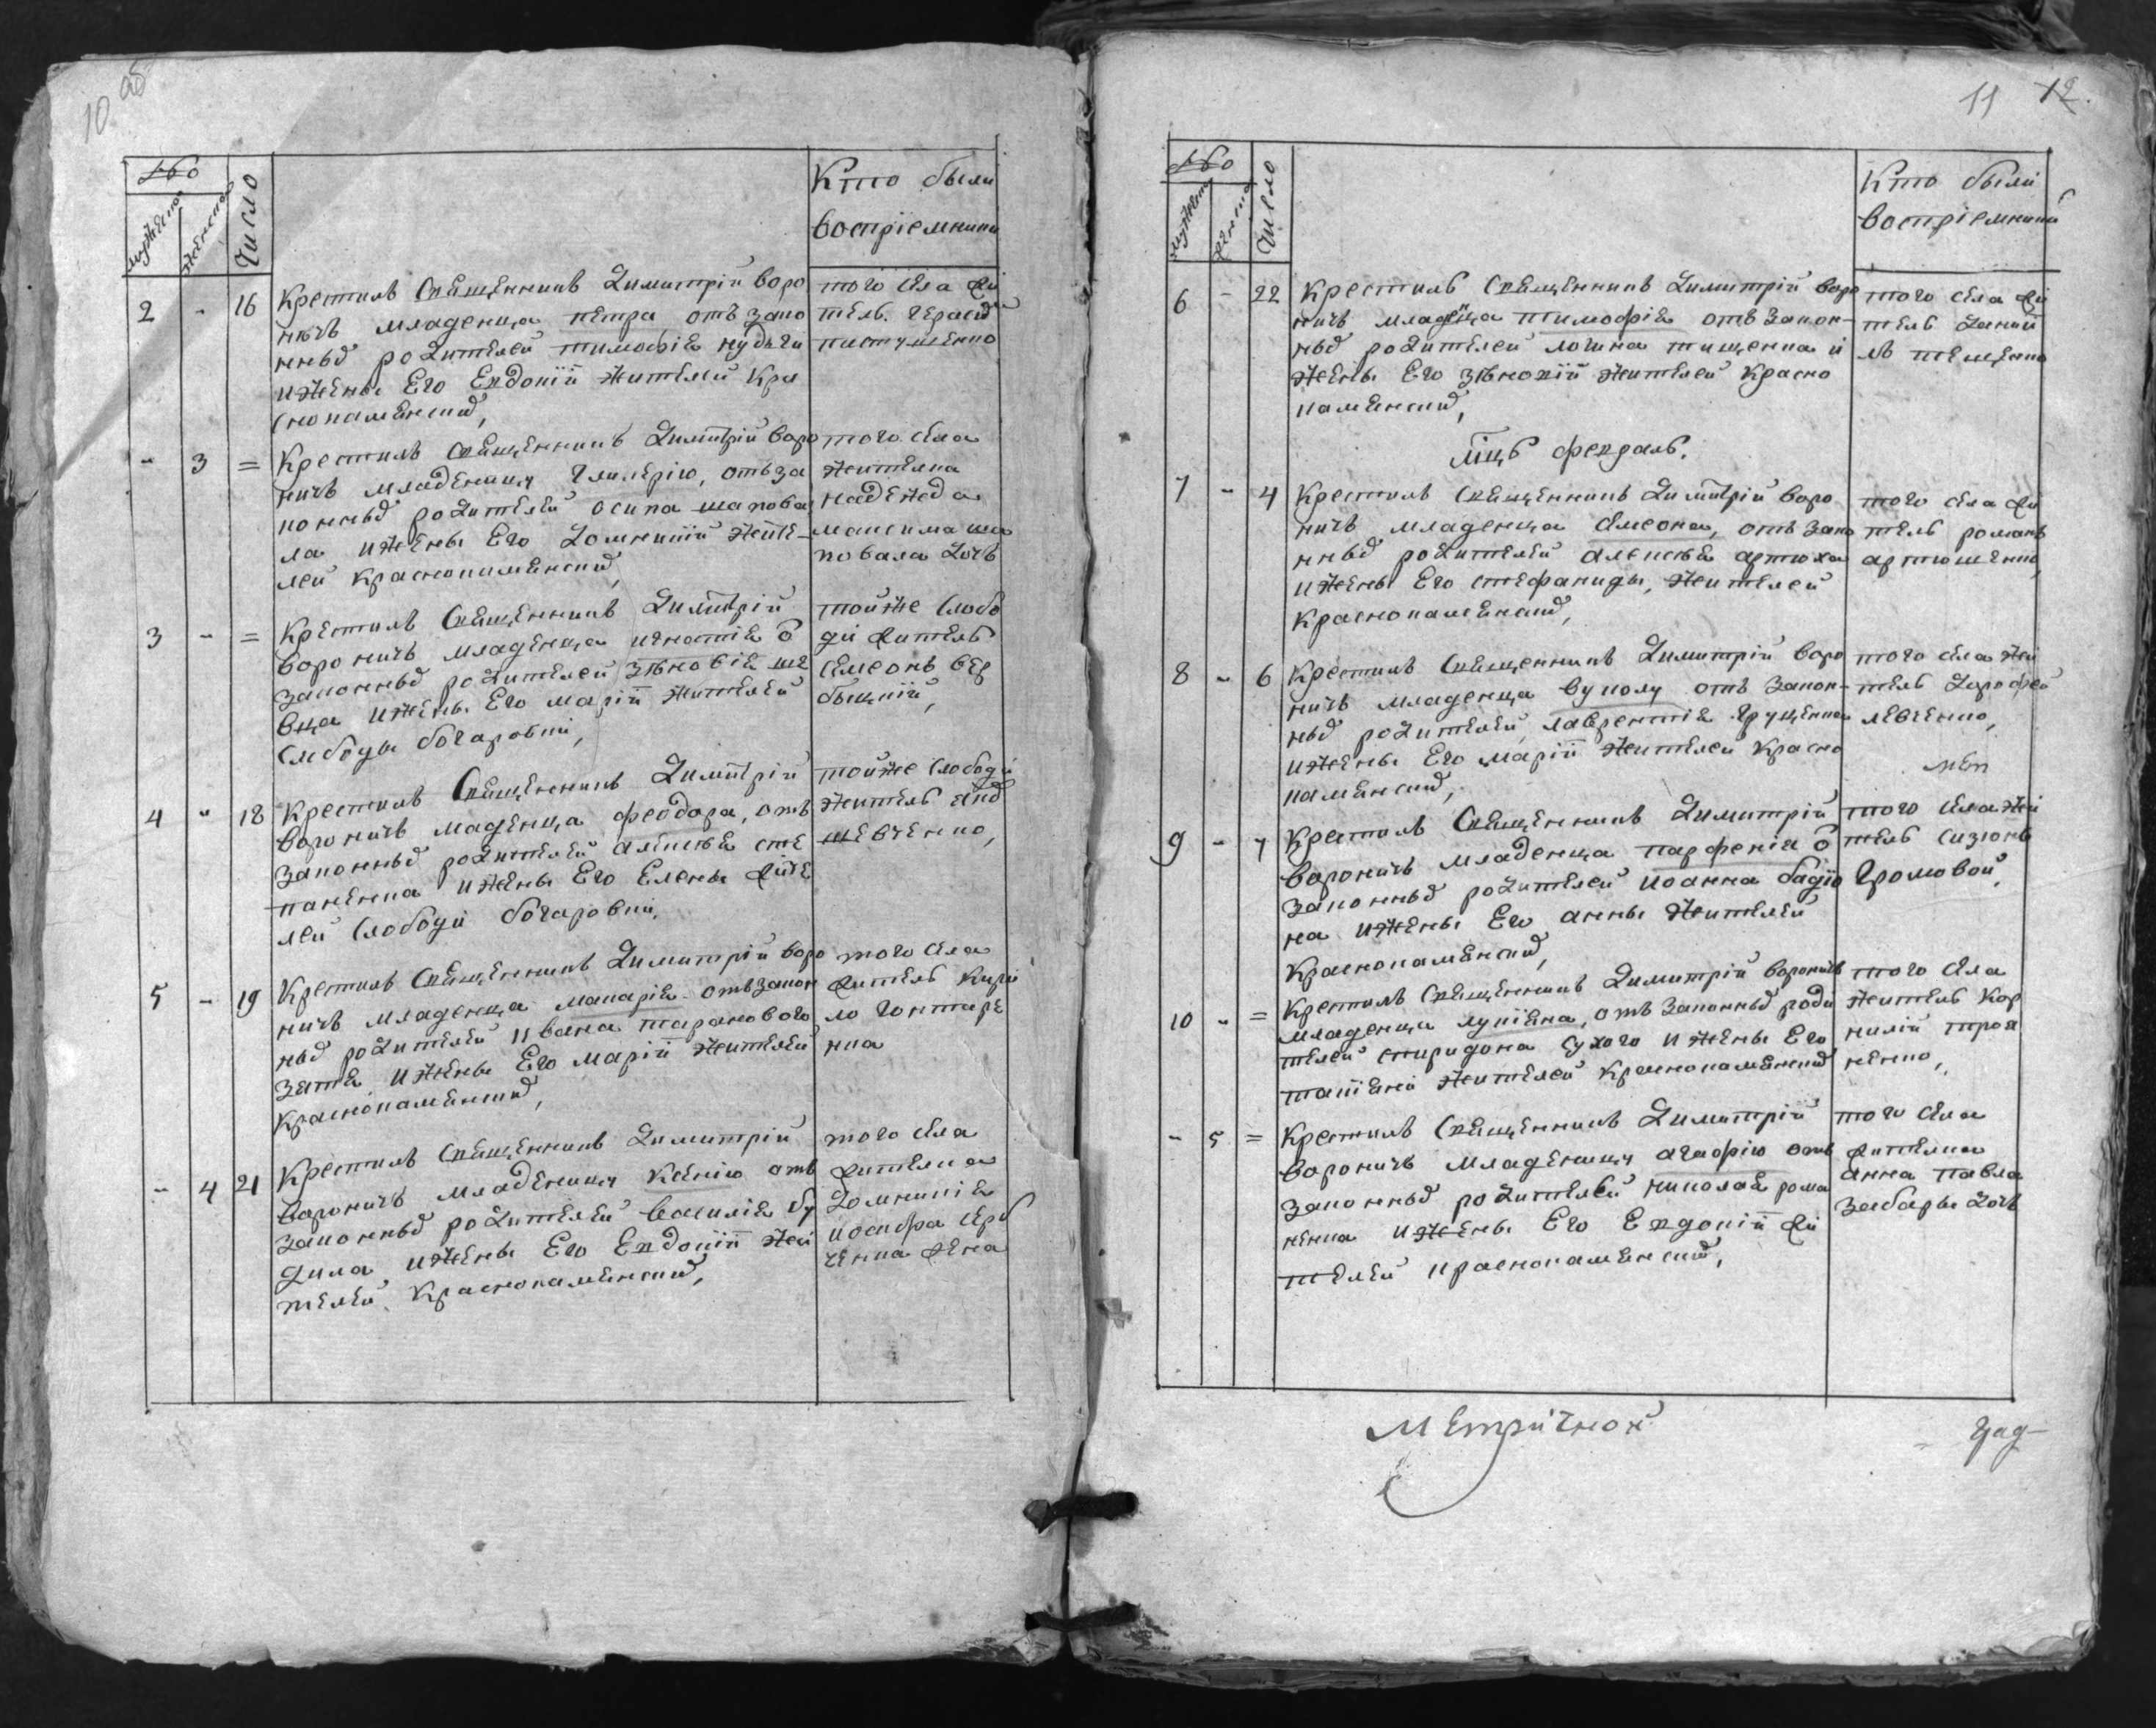 10 об
№о
мужеска
женска
Число
Кто были
воспріемники
2 - 16 Крестилъ Священникъ Димитрій Воро
ничъ младенца петра отъ зако
нныхъ родителей тимофія кудли
и жены Его Евдокіи жителей Кра
снокаменскихъ,
того села жи
тель герасимъ
пастушенко
- 3 = Крестилъ Священникъ Димитрій Воро
ничъ младеницу Гликерію, отъ за
конныхъ родителей осипа шапова
ла и жены Его Домникіи жите-
лей Краснокаменскихъ,
того села
жителка
надежда
максима ша
повала дочь
3 - = Крестилъ Священникъ Димитрій
Вороничъ младенца игнатія о
законныхъ родителей зѣновія ше
вца и жены Его маріи жителей
Слободы бочаровки,
тойже слобо
ди житель
Симеонъ вер
быцкій,
4 - 18 Крестилъ Священникъ Димитрій
Вороничъ маденца феодора, отъ
законныхъ родителей алексѣя сте
паненка и жены Его Елены жите
лей Слободи бочаровки,
тойже слободи
житель
шевченко,
5 - 19 Крестилъ Священникъ Димитрій Воро
ничъ младенца макарія отъ закон
ныхъ родителей ивана таранового
зятя и жены Его маріи жителей
Краснокаменскихъ,
того села
житель Кири
ло гонтаре
нка
- 4 21 Крестилъ Священникъ Димитрій
Вороничъ младеницу Ксенію отъ
законныхъ родителей василія бу
дила и жены Его Евдокіи жи
телей Краснокаменскихъ,
того села
жителка
Домникія
иосифа серб
ченка жена
11 12.
№о
мужеска
женска
Число
Кто были
воспріемники
6 - 22 Крестилъ Священникъ Димитрій Воро
ничъ младенца тимофія отъ закон-
ныхъ родителей логина тищенка и
жены Его зѣновіи жителей Красно
каменскихъ,
того села жи
тель Дании
лъ тищенко
Мцъ февраль.
7 - 4 Крестилъ Священникъ Димитрій Воро
ничъ младенца Симеона, отъ зако
нныхъ родителей алексѣя артюха
и жены Его стефаниды, жителей
Краснокаменскихъ,
того села жи
тель романъ
артюшенко,
8 - 6 Крестилъ Священникъ Димитрій Воро
ничъ младенца вуколу отъ закон-
ныхъ родителей, лаврентія грущенка
и жены Его маріи жителей Красно
каменскихъ,
того села жи
тель дорофей
левченко,
9 - 7 Крестилъ Священникъ Димитрій
Вороничъ младенца парфенія о
законныхъ родителей иоанна бадю
ка и жены Его анны жителей
Краснокаменскихъ,
того села жи
тель сизонъ
громовой,
10 - = Крестилъ Священникъ Димитрій Вороничъ
младенца лукіяна, отъ законныхъ роди
телей спиридона сухого и жены Его
татіяни жителей Краснокаменскихъ
того села
житель Кор
нилій троя
ненко,
- 5 = Крестилъ Священникъ Димитрій
Вороничъ младеницу агафію отъ
законныхъ родителей николая рома
ненка и жены Его Евдокіи жи
телей Краснокаменскихъ,
того села
жителка
анна павла
забары дочь
Метричной